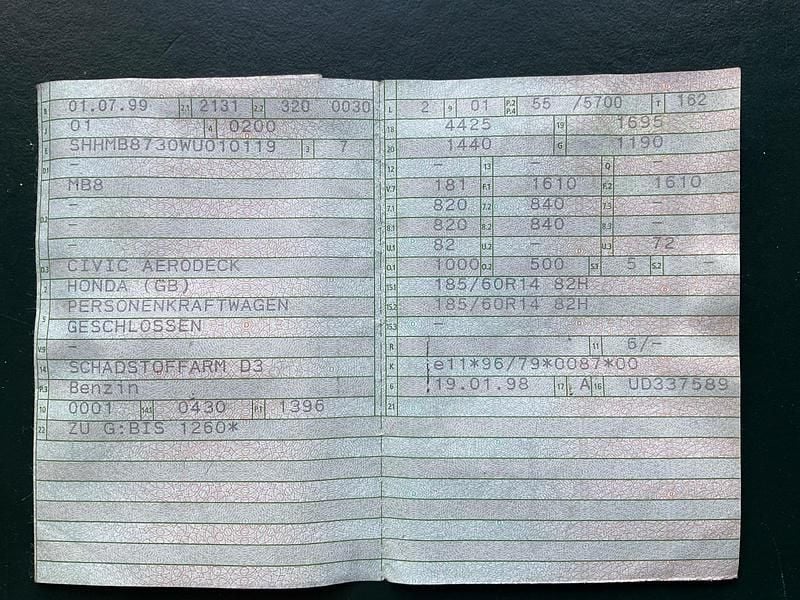 B 01.07.99 2.1 2131 2.2 320 0030
J 01 4 0200
E SHHMB8730WU010119 3 7
D1 -
MB8
-
D.2 -
-
D.3 CIVIC AERODECK
2 HONDA (GB)
PERSONENKRAFTWAGEN
5 GESCHLOSSEN
V.9 -
14 SCHADSTOFFARM D3
P.3 Benzin
10 0001 14.1 0430 P.1 1396
22 ZU G:BIS 1260*
L 2 9 01 P.2 P.4 55 /5700 T 162
18 4425 19 1695
20 1440 G 1190
12 - 13 - Q -
V.7 181 F.1 1610 F.2 1610
7.1 820 7.2 840 7.3 -
8.1 820 8.2 840 8.3 -
U.1 82 U.2 - U.3 72
O.1 1000 O.2 500 S.1 5 S.2 -
15.1 185/60R14 82H
15.2 185/60R14 82H
15.3 -
R 11 6/-
K e11*96/79*0087*00
6 19.01.98 17 A 16 UD337589
21